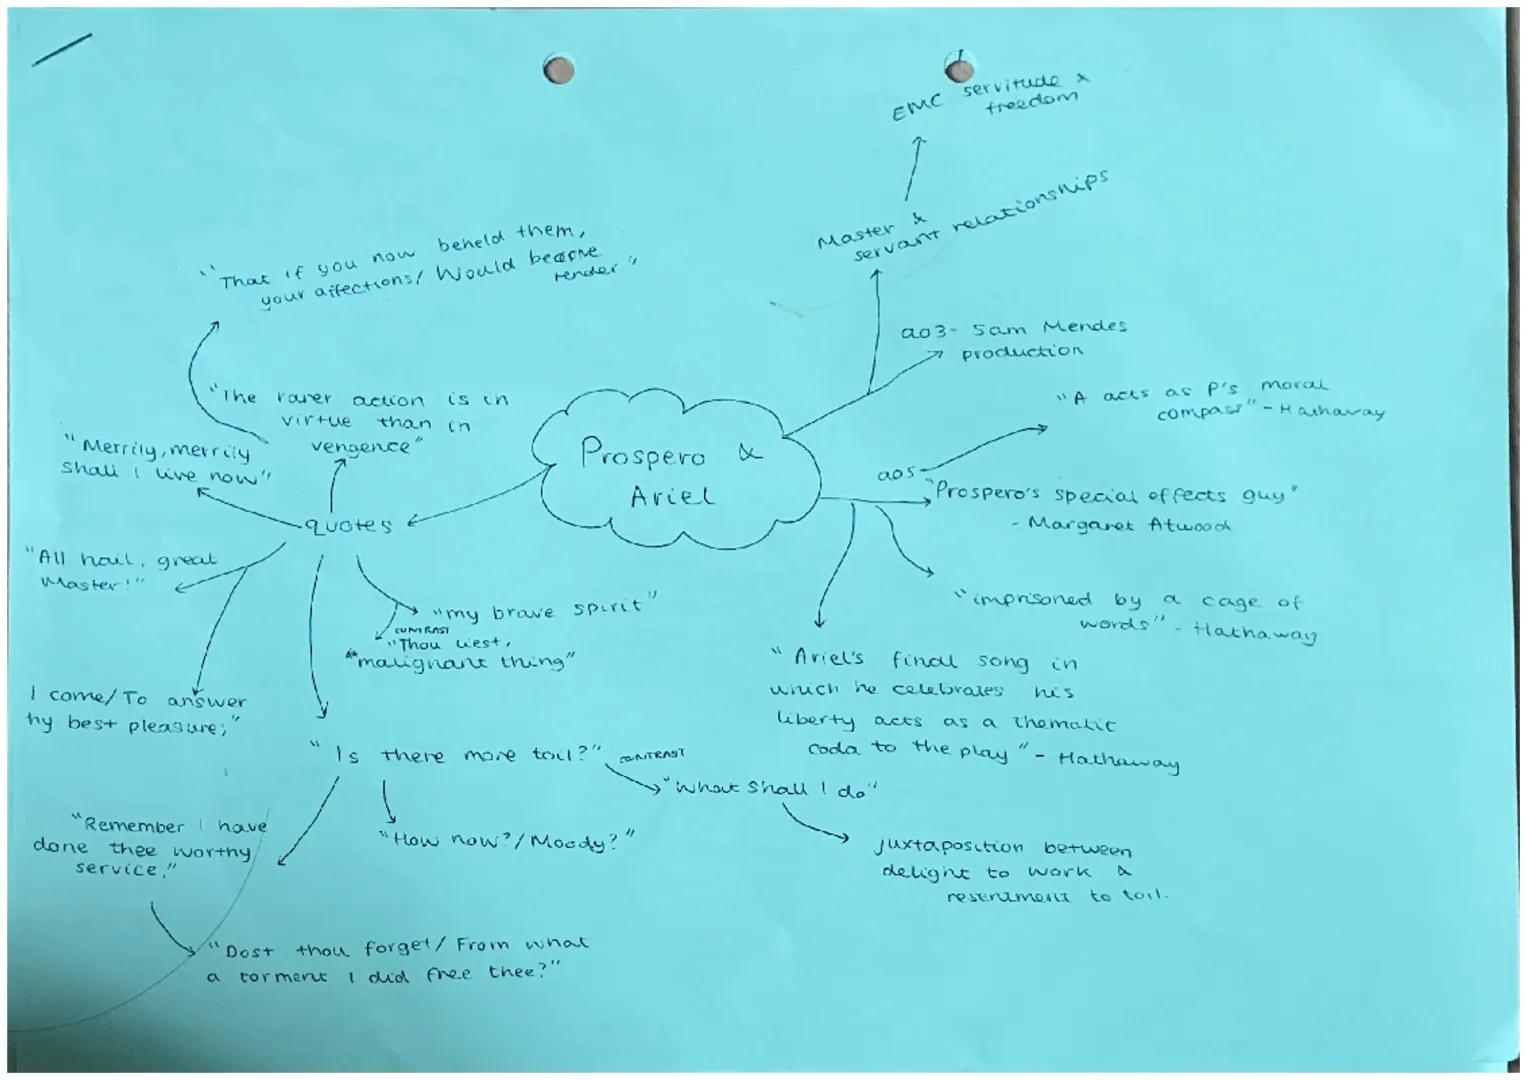 EMC servitude &
freedom
Master &
servant relationships
"That if you now beheld them,
your affections/ Would become
tender"
ao3- Sam Mendes
production
"The rarer action is in
virtue than in
vengence"
"A acts as P's moral
compass" - Hathaway
"Merrily, merrily
shall I live now"
Prospero &
Ariel
ao5
"Prospero's special effects guy"
- Margaret Atwood
quotes
"All hail, great
Master!"
"my brave spirit"
CONTRAST
"Thou liest,
"malignant thing"
"imprisoned by a cage of
words" - Hathaway
"Ariel's final song in
which he celebrates his
liberty acts as a thematic
coda to the play" - Hathaway
I come/ To answer
hy best pleasure;"
"Is there more toil?"
CONTRAST
"What shall I do"
"Remember I have
done thee worthy
service."
"How now?/ Moody?"
juxtaposition between
delight to work &
resentment to toil.
"Dost thou forget/ From what
a torment I did free thee?"